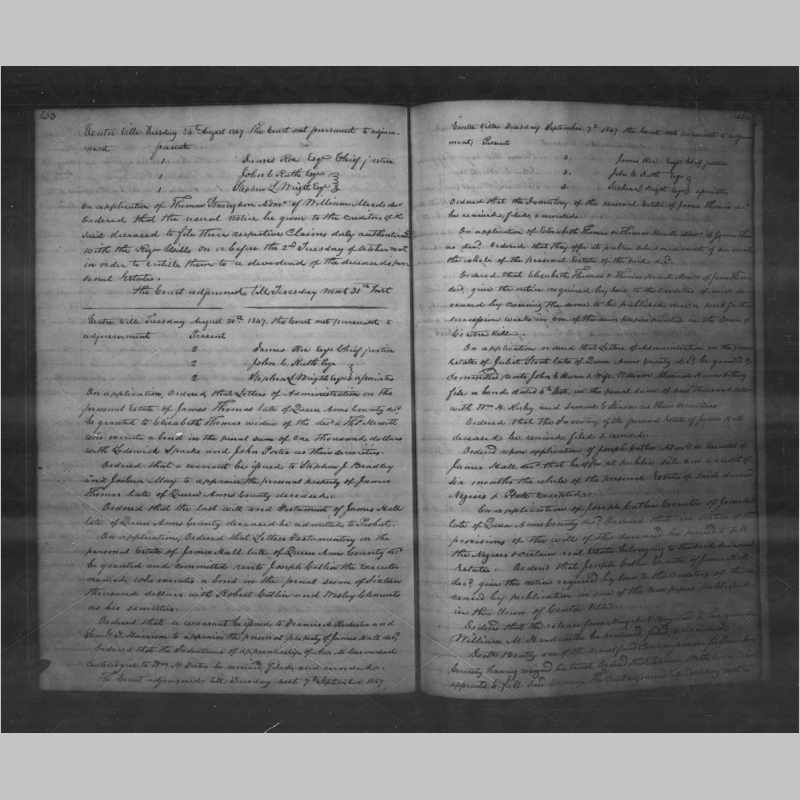 Centre Ville Tuesday 24th August 1847. The Court met pursuant to adjourn-
ment present
1. James Roe Esqr Chief justice
1 John C Ruth Esqr
1 Stephen L Wright Esqr
On application of Thomas Admr of William Meeds decd
Ordered that the usual notice be given to the creditors of the
said deceased to file their respective Claims duly authenticated
with the Regr Wills on or before the 2nd Tuesday of October next
in order to entitle them to a dividend of the deceaseds per-
sonal Estate.
The Court adjourned till Tuesday next 31st Inst
Centre Ville Tuesday August 31st 1847. the Court met pursuant to
adjournment Present
2 James Roe Esqr Chief justice
2 John C Ruth Esqr
2 Stephen L Wright Esqr associates
On application, Ordered that Letters of Administration on the
personal Estate of James Thomas late of Queen Anns County decd
be granted to Elizabeth Thomas widow of the decd & Thos Hewitt
who execute a bond in the penal sum of one thousand dollars
with Edward Sparks and John Porter as their sureties.
Ordered that a warrant be issued to Stephen J Bradley
and Joshua May to appraise the personal property of James
Thomas late of Queen Anns County deceased.
Ordered that the last will and testament of James Hall
late of Queen Anns County deceased be admitted to Probat.
On application, Ordered that Letters Testamentary on the
personal Estate of James Hall late of Queen Anns County decd
be granted and committed unto Joseph Catlin the executor
named, who executes a bond in the penal sum of Sixteen
thousand dollars with Robert Catlin and Wesley Clements
as his sureties.
Ordered that a warrant be issued to and
Harrison to appraise the personal property of James Hall decd
Ordered that the Indentures of apprenticeship of
to Wm H be received, filed and recorded.
The Court adjourned till Tuesday next 7th September 1847
Centre Ville Tuesday September 7th 1847 the Court met pursuant to adjourn-
ment, Present
3. James Roe Esqr Chief justice
3. John C Ruth Esqr
3. Stephen L Wright Esqr associates
Ordered that the Inventory of the personal estate of James Thomas decd
be received, filed & recorded.
On application of Elizabeth Thomas & Thomas Hewitt Admrs of James Thom-
as decd. Ordered that they offer at public sale on a credit of
the whole of the personal Estate of the said decd.
Ordered that Elizabeth Thomas & Thomas Hewitt Admrs of James Thomas
decd, give the notice required by law to the Creditors of said de-
ceased by causing the same to be published once a week for three
successive weeks in one of the news papers printed in the Town of
Centre Ville.
On application ordered that Letters of Administration on the personal
Estate of late of Queen Anns County decd be granted &
committed unto John & wife
file a bond dated in the penal sum of one thousand dollars
with Wm H. Kirby and as their sureties
Ordered that the Inventory of the personal estate of James Hall
deceased be received filed & recorded.
Ordered upon application of Joseph Catlin Executor of
James Hall decd that he offer at public sale on a credit of
six months the whole of the personal Estate of said deceased
Negroes & excepted.
On application of Joseph Catlin Executor of James Hall
late of Queen Anns County decd Ordered that
provisions of the will of the deceased he proceed to sell
the Negroes & certain real estate belonging to the deceaseds
Estate. Ordered that Joseph Catlin Executor of James Hall
decd, give the notice required by law to the Creditors of the de-
ceased by publication in one of the news papers published
in the Town of Centre Ville.
Ordered that the release from
William H. be received filed & recorded.
one of the
County having resigned
appointed to fill The Court adjourned